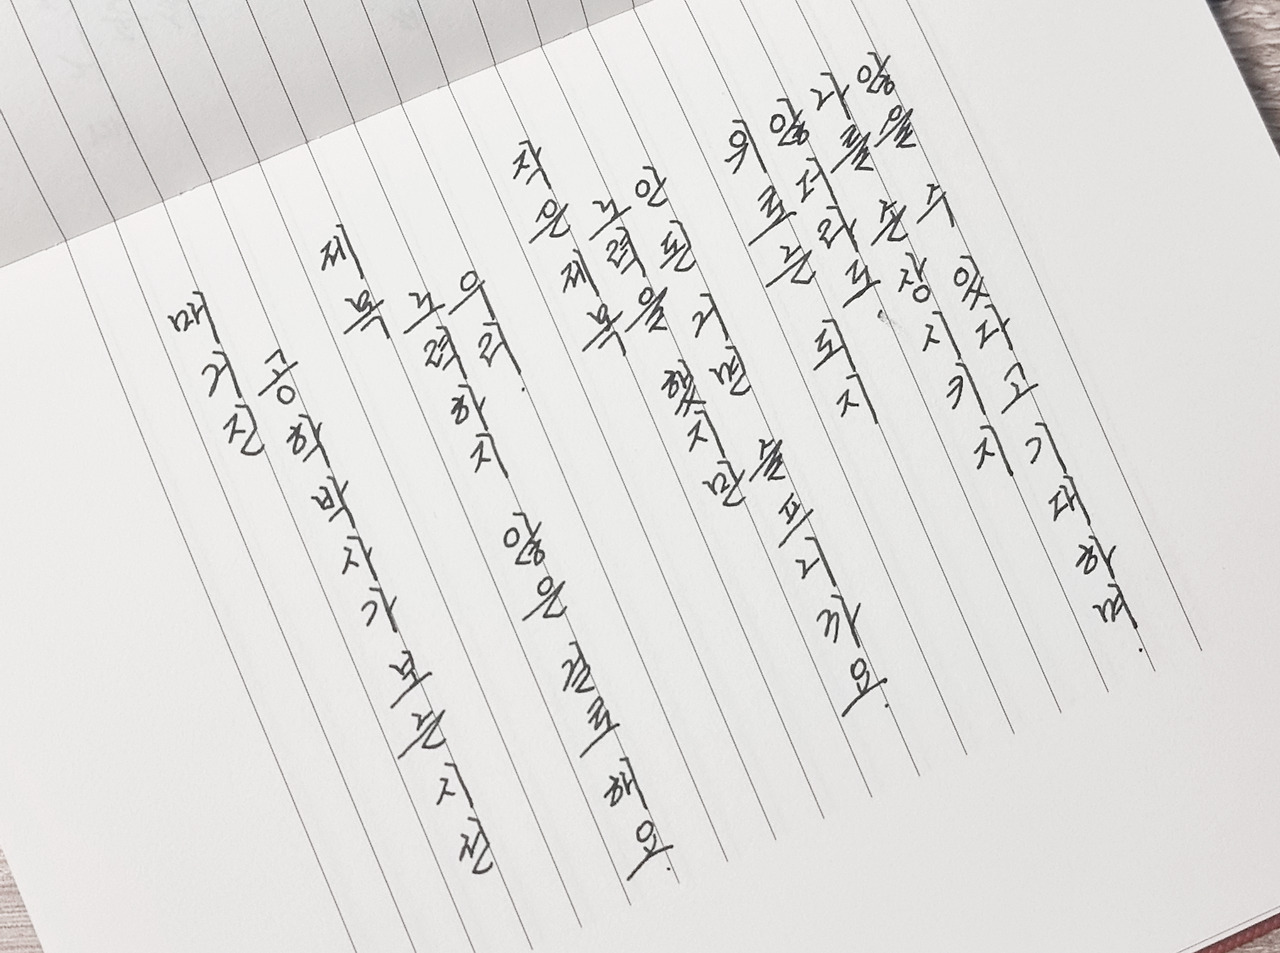 매거진
공학박사가 보는 시선
제목
노력하지 않은 걸로 해요.
우리.
작은제목
노력을 했지만
안된 거면 슬프니까요.
위로는 되지
않더라도.
나를 손상시키지
않을 수 있다고 기대하며.